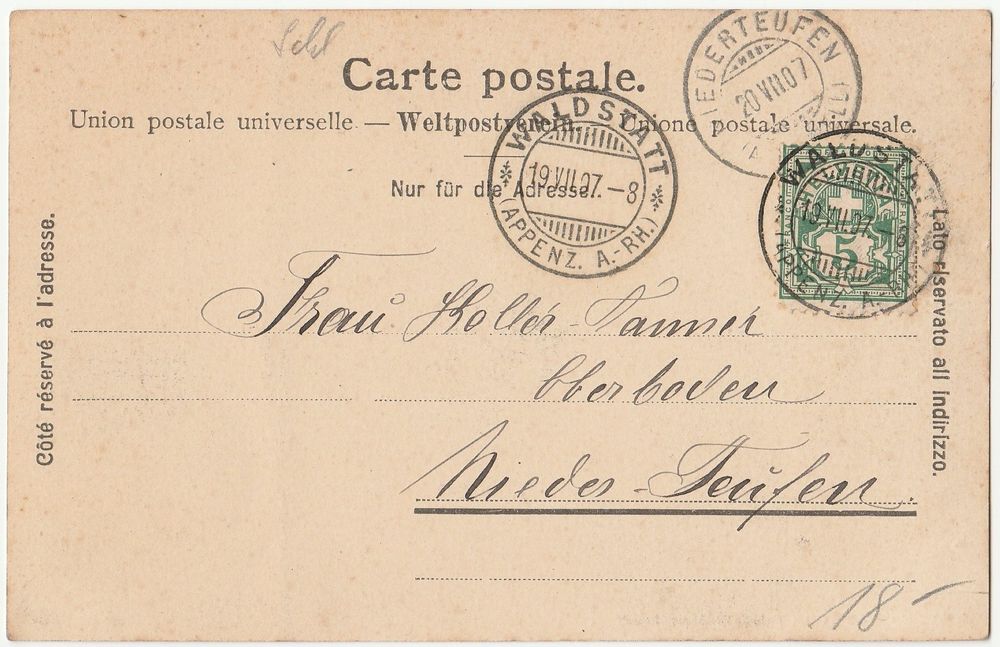 Carte postale.
Union postale universelle — Weltpostverein. — Unione postale universale.
Nur für die Adresse.
Côté réservé à l'adresse.
Lato riservato all indirizzo.
WALDSTATT
19.VII.07.–8
(APPENZ. A.-RH.)
NIEDERTEUFEN
20 VII 07
WALDSTATT
19.VII.07.–8
(APPENZ. A.-RH.)
FRANCO
5
Frau Koller-Tanner
Oberboden
Nieder-Teufen.
18-